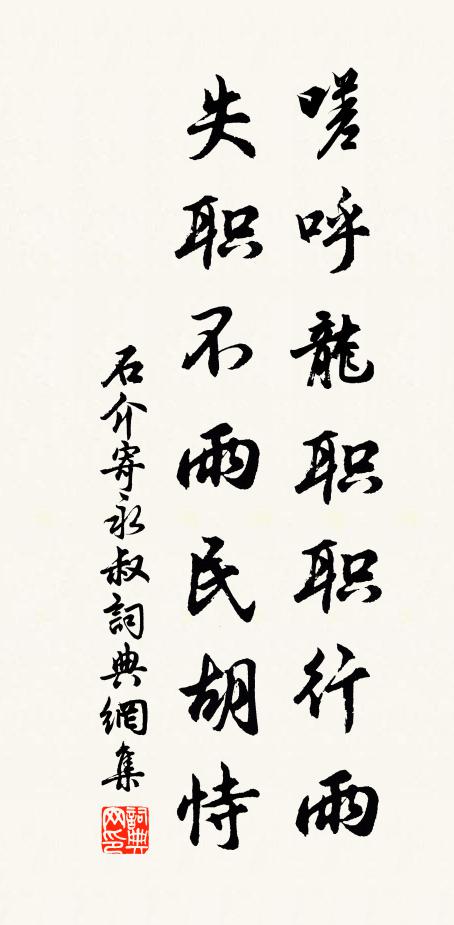 嗟呼龍职职行雨
失职不雨民胡恃
石介寄永叔詞典網集
詞典网印